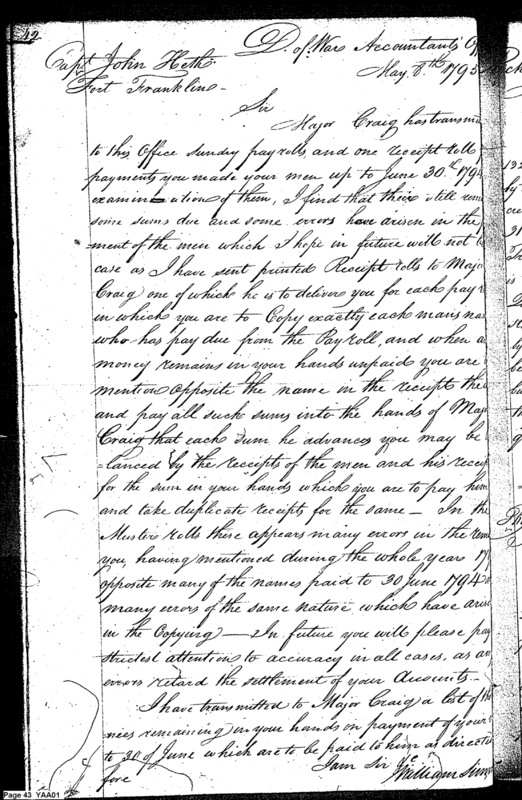 42
D. of Wars Accountants Off
Capt John Heth
May 8th 1795
Fort Franklin
Sir
Major Craig has transm
to this Office sundry payrolls, and one receipt roll
payments you made your men up to June 30th 1794
examin=ation of them, I find that their still rem
some sums due and some errors have arisen in the
ment of the men which I hope in future will not b
case as I have sent printed Receipt rolls to Majo
Craig one of which he is to deliver you for each pay r
in which you are to Copy exactly each man's na
who has pay due from the Payroll, and when a
money remains in your hands unpaid you are
mention opposite the name in the receipts the
and pay all such sums into the hands of Maj
Craig that each sum he advances you may be
=lanced by the receipts of the men and his recei
for the sum in your hands which you are to pay him
and take duplicate receipts for the same — In the
Muster rolls there appears many errors in the rem
you, having mentioned during the whole year 17
opposite many of the names paid to 30 June 1794
many errors of the same nature which have aris
in the Copying — In future you will please pay
strictest attention to accuracy in all cases, as an
errors retard the settlement of your Accounts.
I have transmitted to Major Craig a list of th
nies remaining in your hands on payment of your
to 30 of June which are to be paid to him as directe
fore
I am Sir &c
William Sim
Page 43 YAA01